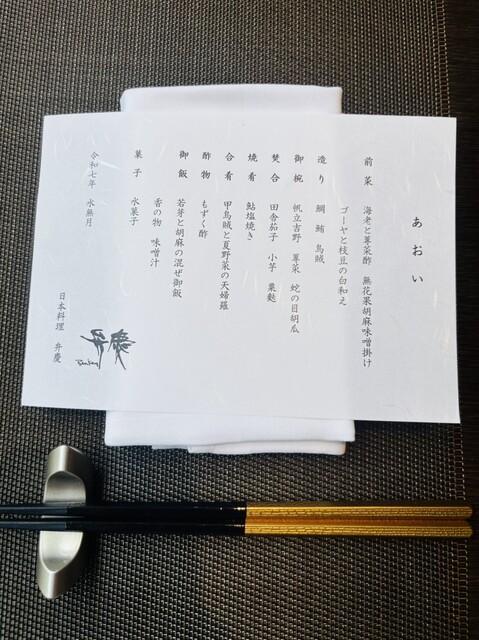 あおい
前菜 海老と蓴菜酢 無花果胡麻味噌掛け
ゴーヤと枝豆の白和え
造り 鯛 鮪 烏賊
御椀 帆立吉野 蓴菜 蛇の目胡瓜
焚合 田舎茄子 小芋 粟麩
焼肴 鮎塩焼き
合肴 甲烏賊と夏野菜の天婦羅
酢物 もずく酢
御飯 若芽と胡麻の混ぜ御飯
香の物 味噌汁
菓子 水菓子
令和七年 水無月
日本料理 弁慶
弁慶
Benkay